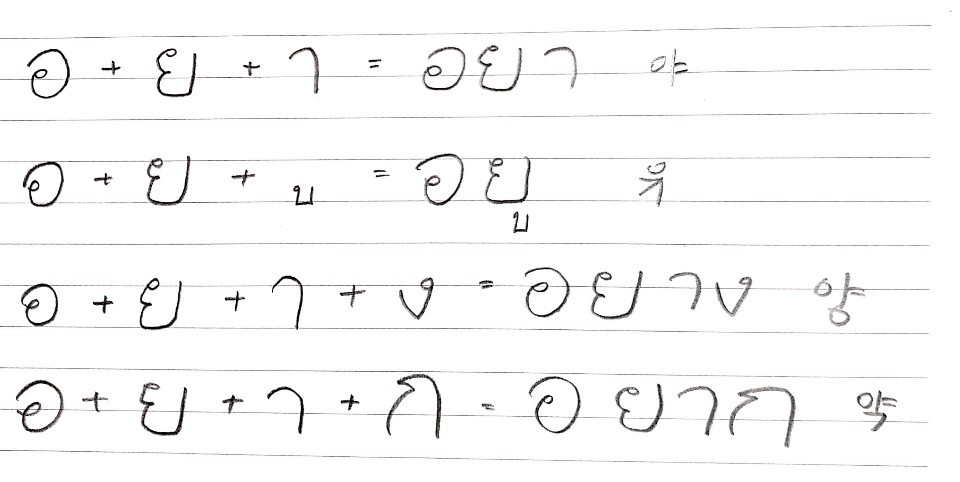 อ + ย + า = อยา 야
อ + ย + ู = อยู 유
อ + ย + า + ง = อยาง 양
อ + ย + า + ก = อยาก 약